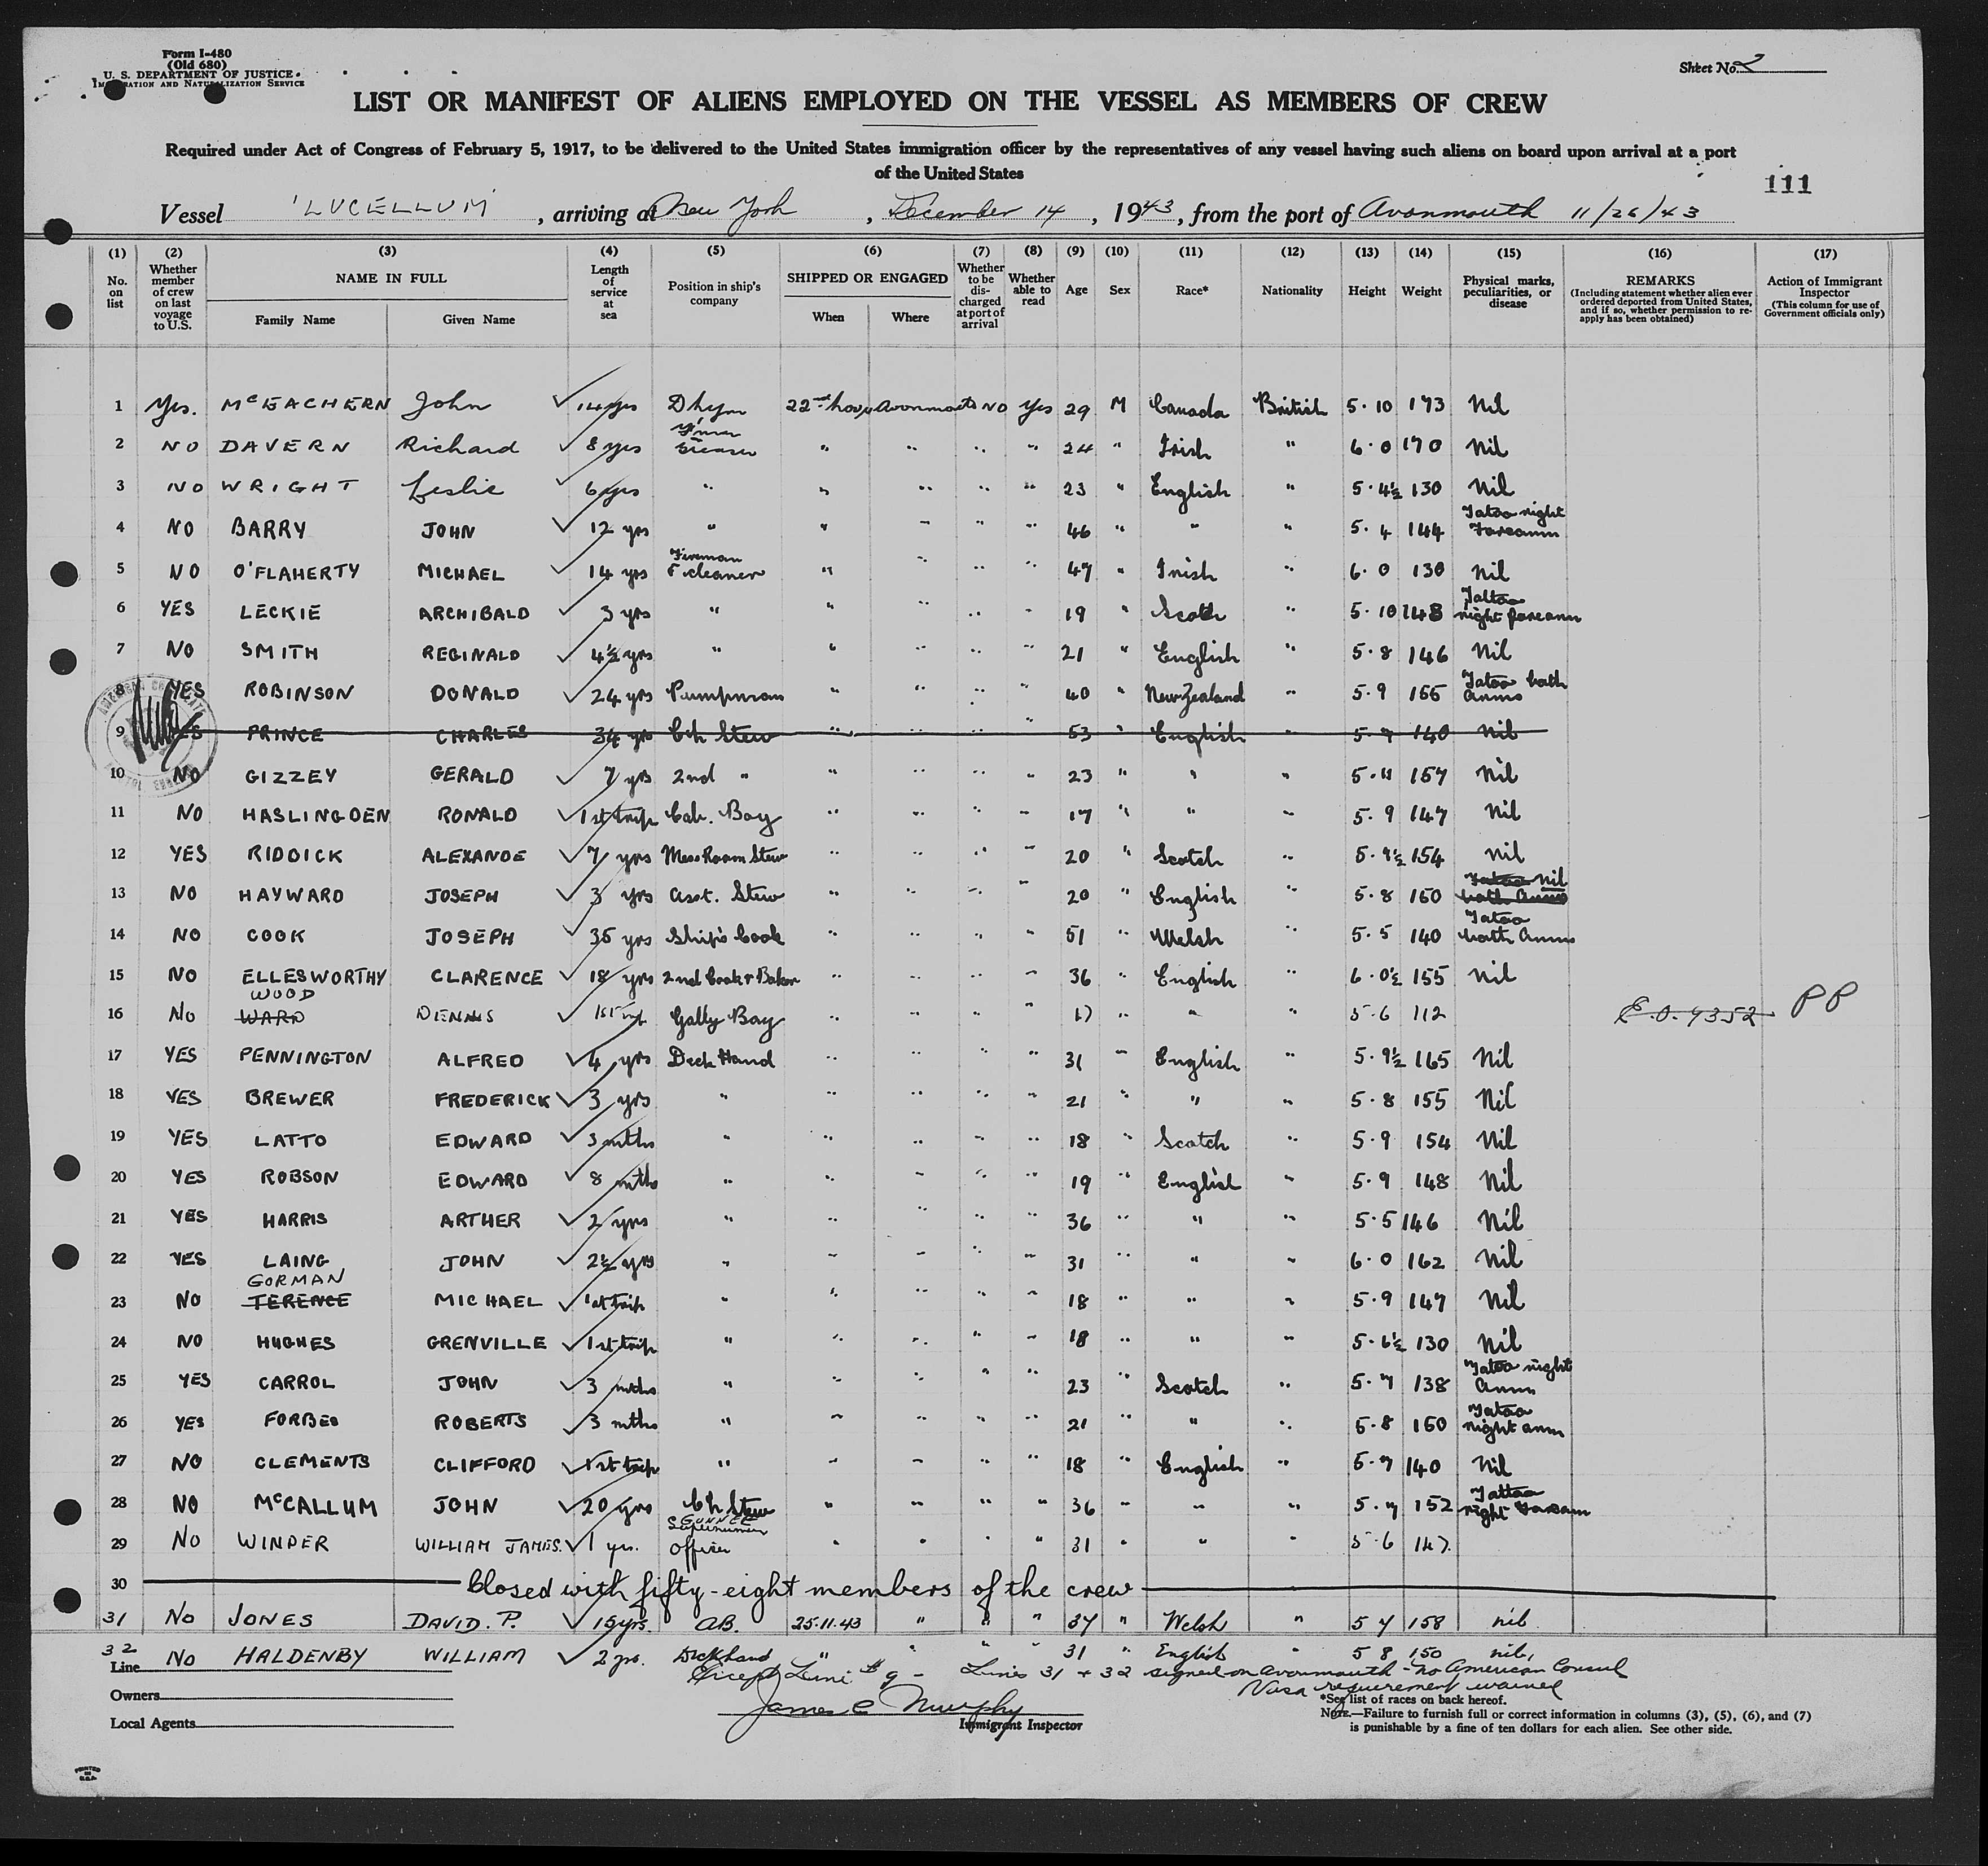 Form I-480
(Old 680)
U. S. DEPARTMENT OF JUSTICE
IMMIGRATION AND NATURALIZATION SERVICE
Sheet No. 2
LIST OR MANIFEST OF ALIENS EMPLOYED ON THE VESSEL AS MEMBERS OF CREW
Required under Act of Congress of February 5, 1917, to be delivered to the United States immigration officer by the representatives of any vessel having such aliens on board upon arrival at a port
of the United States
111
Vessel 'LUCELLUM', arriving at New York, December 14, 1943, from the port of Avonmouth 11/26/43
(1) (2) (3) (4) (5) (6) (7) (8) (9) (10) (11) (12) (13) (14) (15) (16) (17)
No. on list
Whether member of crew on last voyage to U.S.
NAME IN FULL
Family Name
Given Name
Length of service at sea
Position in ship's company
SHIPPED OR ENGAGED
When
Where
Whether to be discharged at port of arrival
Whether able to read
Age
Sex
Race*
Nationality
Height
Weight
Physical marks, peculiarities, or disease
REMARKS
(Including statement whether alien ever ordered deported from United States, and if so, whether permission to reapply has been obtained)
Action of Immigrant Inspector
(This column for use of Government officials only)
1 Yes. McEACHERN John 14 yrs 22nd Nov Avonmouth NO Yes 29 M Canada British 5·10 173 Nil
2 NO DAVERN Richard 8 yrs Greaser " " " " 24 " Irish " 6·0 170 Nil
3 NO WRIGHT Leslie 6 yrs " " " " " 23 " English " 5·4½ 130 Nil
4 NO BARRY JOHN 12 yrs " " " " " 46 " " " 5·4 144 Tatoo right Forearm
5 NO O'FLAHERTY MICHAEL 14 yrs Fireman & cleaner " " " " 47 " Irish " 6·0 130 Nil
6 YES LECKIE ARCHIBALD 3 yrs " " " " " 19 " Scotch " 5·10 148 Tattoo right forearm
7 NO SMITH REGINALD 4½ yrs " " " " " 21 " English " 5·8 146 Nil
8 YES ROBINSON DONALD 24 yrs Pumpman " " " " 40 " New Zealand " 5·9 166 Tatoo both arms
9 YES PRINCE CHARLES 34 yrs Ch Stew " " " " 53 " English " 5·7 140 Nil
10 NO GIZZEY GERALD 7 yrs 2nd " " " " " 23 " " " 5·11 157 Nil
11 NO HASLINGDEN RONALD 1st trip Cab. Boy " " " " 17 " " " 5·9 147 Nil
12 YES RIDDICK ALEXANDE 7 yrs Mess Room Stew " " " " 20 " Scotch " 5·9½ 154 Nil
13 NO HAYWARD JOSEPH 3 yrs Asst. Stew " " " " 20 " English " 5·8 150 Tatoo Nil both Arms
14 NO COOK JOSEPH 35 yrs Ship's Cook " " " " 51 " Welsh " 5·5 140 Tatoo both Arms
15 NO ELLESWORTHY CLARENCE 18 yrs 2nd Cook & Baker " " " " 36 " English " 6·0½ 155 Nil
WOOD
16 No WARD DENNIS 1st trip Gally Boy " 17 " " " 5·6 112 E.O. 9352 PP
17 YES PENNINGTON ALFRED 4 yrs Deck Hand " " " " 31 " English " 5·9½ 165 Nil
18 YES BREWER FREDERICK 3 yrs " " " " " 21 " " " 5·8 155 Nil
19 YES LATTO EDWARD 3 mths " " " " " 18 " Scotch " 5·9 154 Nil
20 YES ROBSON EDWARD 8 mths " " " " " 19 " English " 5·9 148 Nil
21 YES HARRIS ARTHER 2 yrs " " " " " 36 " " " 5·5 146 Nil
22 YES LAING JOHN 2½ yrs " " " " " 31 " " " 6·0 162 Nil
GORMAN
23 NO TERENCE MICHAEL 1st trip " " " " " 18 " " " 5·9 147 Nil
24 NO HUGHES GRENVILLE 1st trip " " " " " 18 " " " 5·6½ 130 Nil
25 YES CARROL JOHN 3 mths " " " " " 23 " Scotch " 5·7 138 Tatoo right Arm
26 YES FORBES ROBERTS 3 mths " " " " " 21 " " " 5·8 150 Tatoo right arm
27 NO CLEMENTS CLIFFORD 1st trip " " " " " 18 " English " 5·7 140 Nil
28 NO McCALLUM JOHN 20 yrs Ch Stew " " " " 36 " " " 5·7 152 Tattoo right Forearm
29 No WINDER WILLIAM JAMES. 1 yr. Officer " " " " 31 " " " 5·6 147
30 Closed with fifty-eight members of the crew
31 No JONES DAVID. P. 15 yrs. AB. 25·11·43 " " " 37 " Welsh " 5 7 158 nil
32 No HALDENBY WILLIAM 2 yrs. Deckhand " " " " 31 " English " 5 8 150 nil,
Line
Except Line # 9 - Lines 31 + 32 signed on Avonmouth - No American Consul
Visa requirement waived
Owners
James C Murphy
Immigrant Inspector
Local Agents
*See list of races on back hereof.
NOTE.—Failure to furnish full or correct information in columns (3), (5), (6), and (7)
is punishable by a fine of ten dollars for each alien. See other side.
PRINTED IN U.S.A.